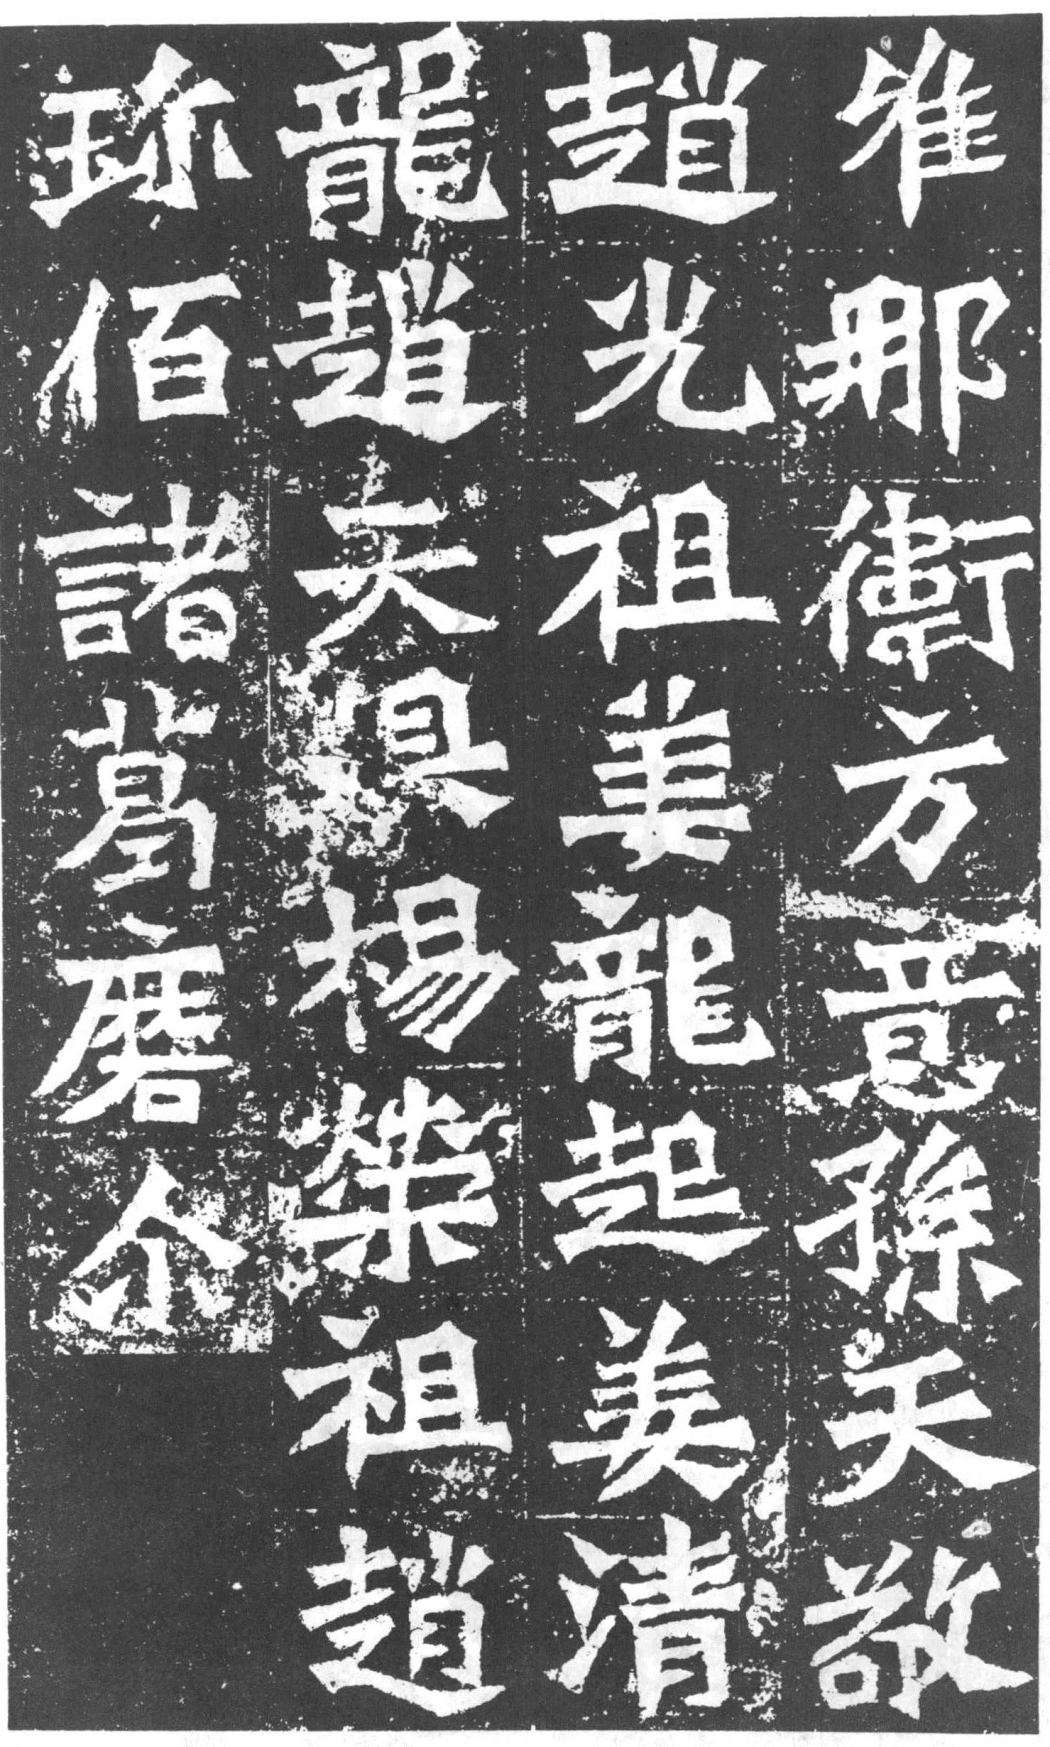 唯那衛方意孫天敬
趙光祖美龍起美清
龍趙天俱楊榮祖趙
珎佰諸葛磨尒